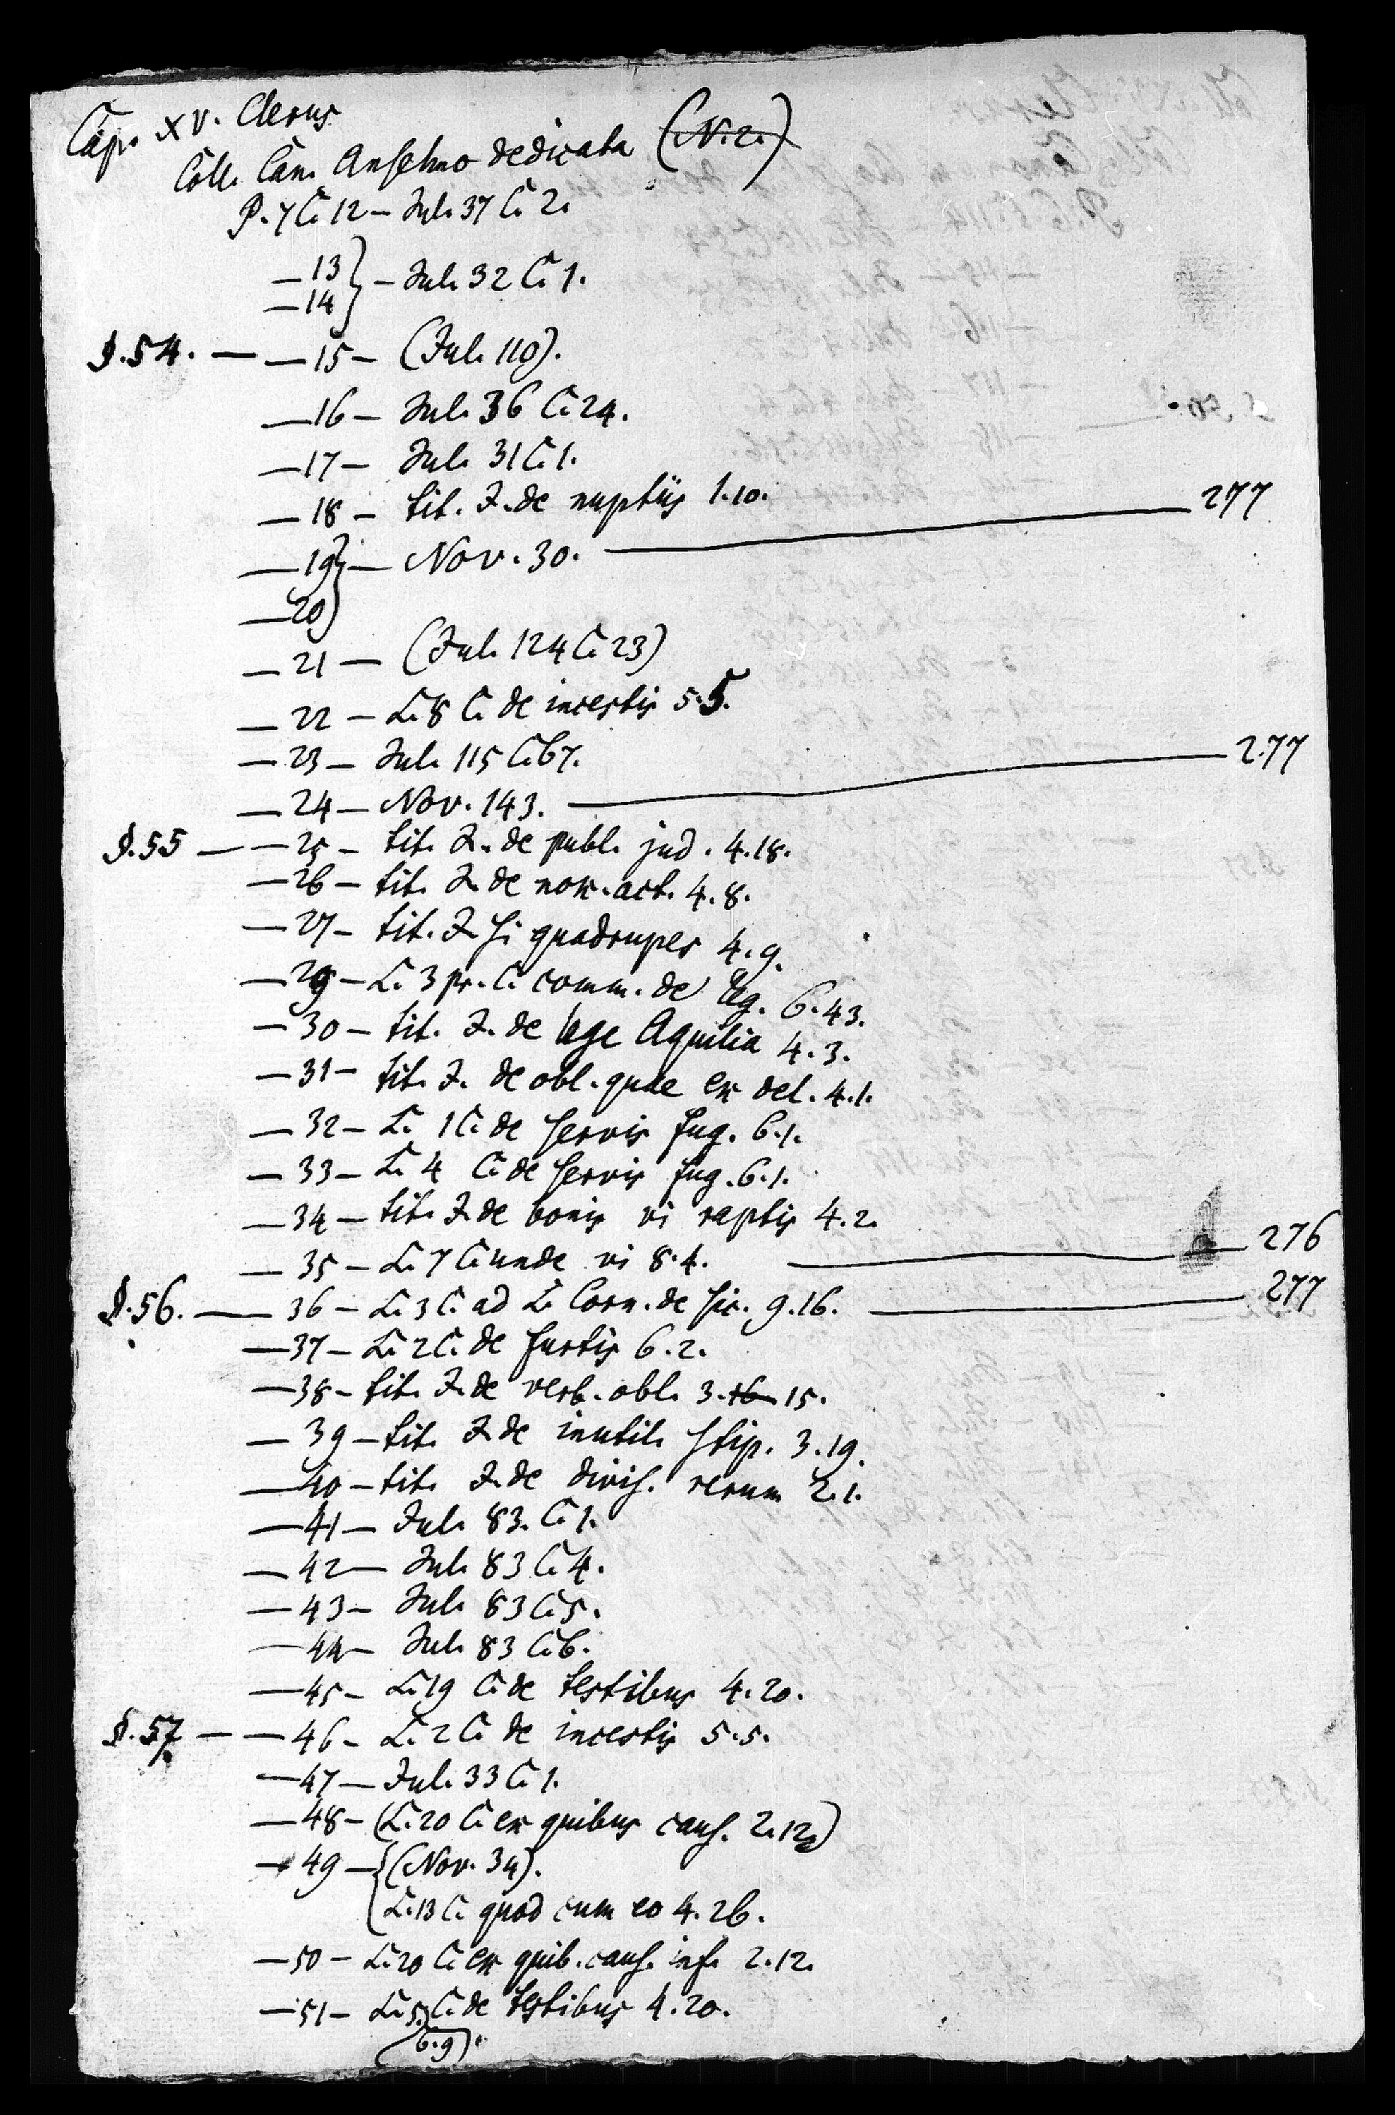 Cap. XV. Clerus
Coll. Can. Anselmo dedicata (N. 2.)
P. 7 C. 12 – Jul. 37 C. 2.
— 13 } – Jul. 32 C. 1.
— 14 }
§. 54. — — 15 – (Jul. 110).
— 16 – Jul. 36 C. 24.
— 17 – Jul. 31 C. 1.
— 18 – tit. J. de nuptiis 1. 10.
— 19 } — Nov. 30. — 277
— 20 }
— 21 — (Jul. 124 C. 23)
— 22 – L. 8 C. de incestis 5. 5.
— 23 – Jul. 115 C. 67.
— 24 – Nov. 143. — 277
§. 55 — — 25 – tit. J. de publ. jud. 4. 18.
— 26 – tit. J. de nox. act. 4. 8.
— 27 – tit. J. si quadrupes 4. 9.
— 29 – L. 3 pr. C. comm. de leg. 6. 43.
— 30 – tit. J. de lege Aquilia 4. 3.
— 31 – tit. J. de obl. quae ex del. 4. 1.
— 32 – L. 1 C. de servis fug. 6. 1.
— 33 – L. 4 C. de servis fug. 6. 1.
— 34 – tit. J. de bonis vi raptis 4. 2.
— 35 – L. 7 C. unde vi 8. 4. — 276
§. 56. — 36 – L. 3 C. ad L. Corn. de sic. 9. 16. — 277
— 37 – L. 2 C. de furtis 6. 2.
— 38 – tit. J. de verb. obl. 3. 16 15.
— 39 – tit. J. de inutil. stip. 3. 19.
— 40 – tit. J. de divis. rerum 2. 1.
— 41 – Jul. 83. C. 1.
— 42 — Jul. 83 C. 4.
— 43 – Jul. 83 C. 5.
— 44 – Jul. 83 C. 6.
— 45 – L. 19 C. de testibus 4. 20.
§. 57 — — 46 – L. 2 C. de incestis 5. 5.
— 47 – Jul. 33 C. 1.
— 48 – (L. 20 C. ex quibus caus. 2. 12)
— 49 – { (Nov. 34).
L. 13 C. quod cum eo 4. 26.
— 50 – L. 20 C. ex quib. caus. inf. 2. 12.
— 51 – L. 5 C. de testibus 4. 20.
(6. 9).